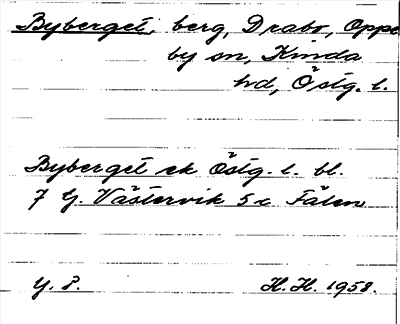 Byberget, berg, Drabo, Oppe
by sn, Kinda
hd, Östg. l.
Byberget ek Östg. l. bl.
7 G. Västervik 5 c Fålen
Y. P.
H. H. 1958.